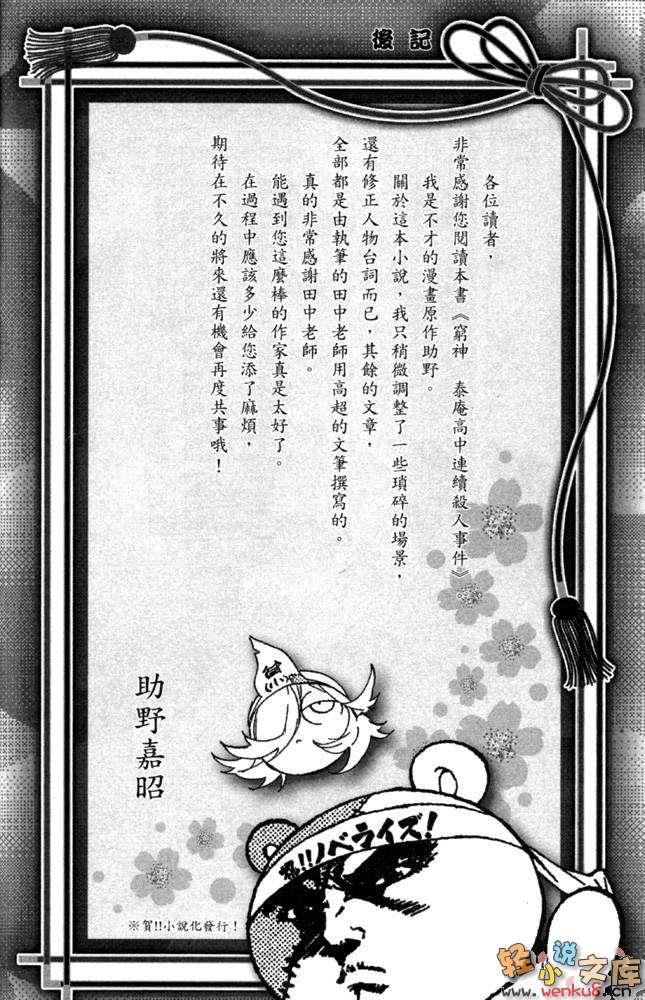 後記
各位讀者，
非常感謝您閱讀本書《窮神　泰庵高中連續殺人事件》。
我是不才的漫畫原作助野。
關於這本小說，我只稍微調整了一些瑣碎的場景，
還有修正人物台詞而已，其餘的文章，
全部都是由執筆的田中老師用高超的文筆撰寫的。
真的非常感謝田中老師。
能遇到您這麼棒的作家真是太好了。
在過程中應該多少給您添了麻煩，
期待在不久的將來還有機會再度共事哦！
助野嘉昭
!!ノベライズ!
※賀!!小說化發行！
轻小说文库
www.wenku8.cn